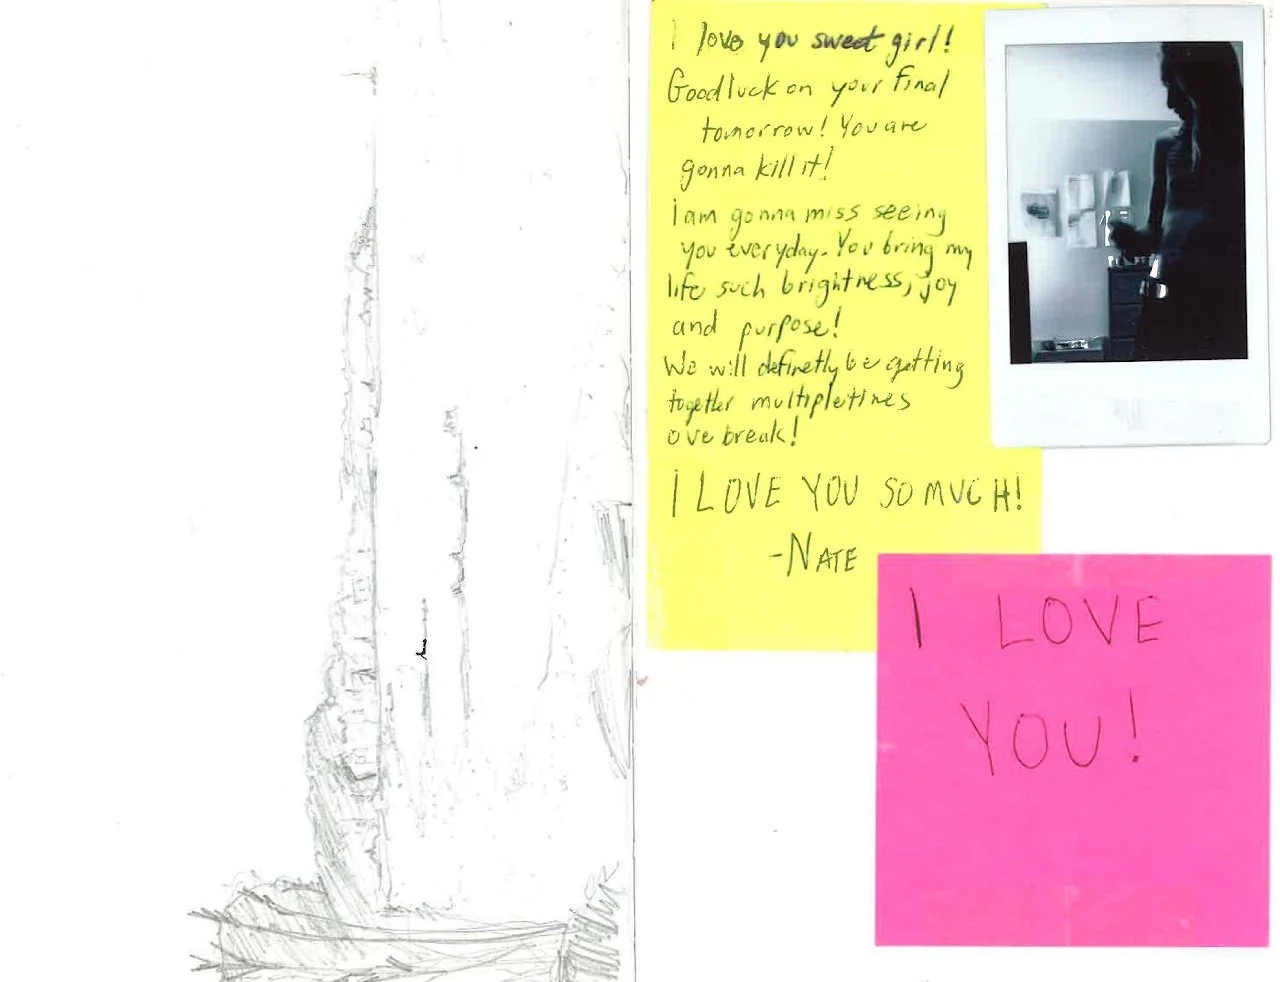 I love you sweet girl!
Goodluck on your final
tomorrow! You are
gonna kill it!
I am gonna miss seeing
you everyday. You bring my
life such brightness, joy
and purpose!
We will definetly be getting
together multiple times
ove break!
I LOVE YOU SO MUCH!
-NATE
I LOVE
YOU!